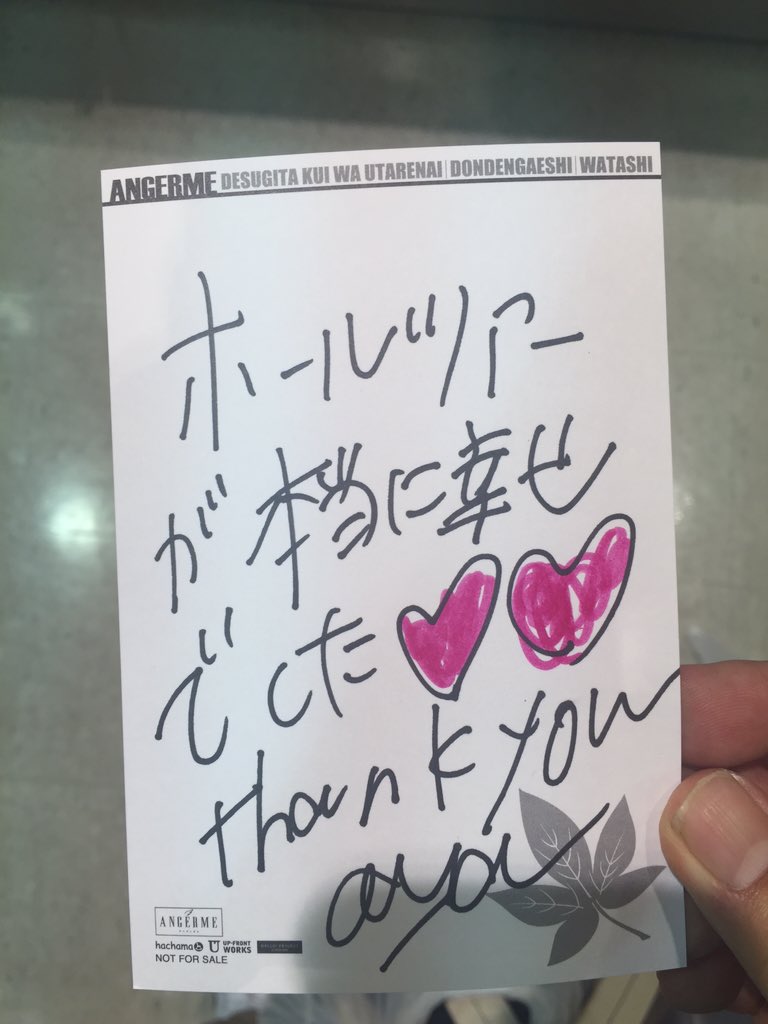 ANGERME DESUGITA KUI WA UTARENAI | DONDENGAESHI | WATASHI
ホールツアー
が本当に幸せ
でした
thank you
aya
ANGERME
hachama UP-FRONT WORKS
NOT FOR SALE